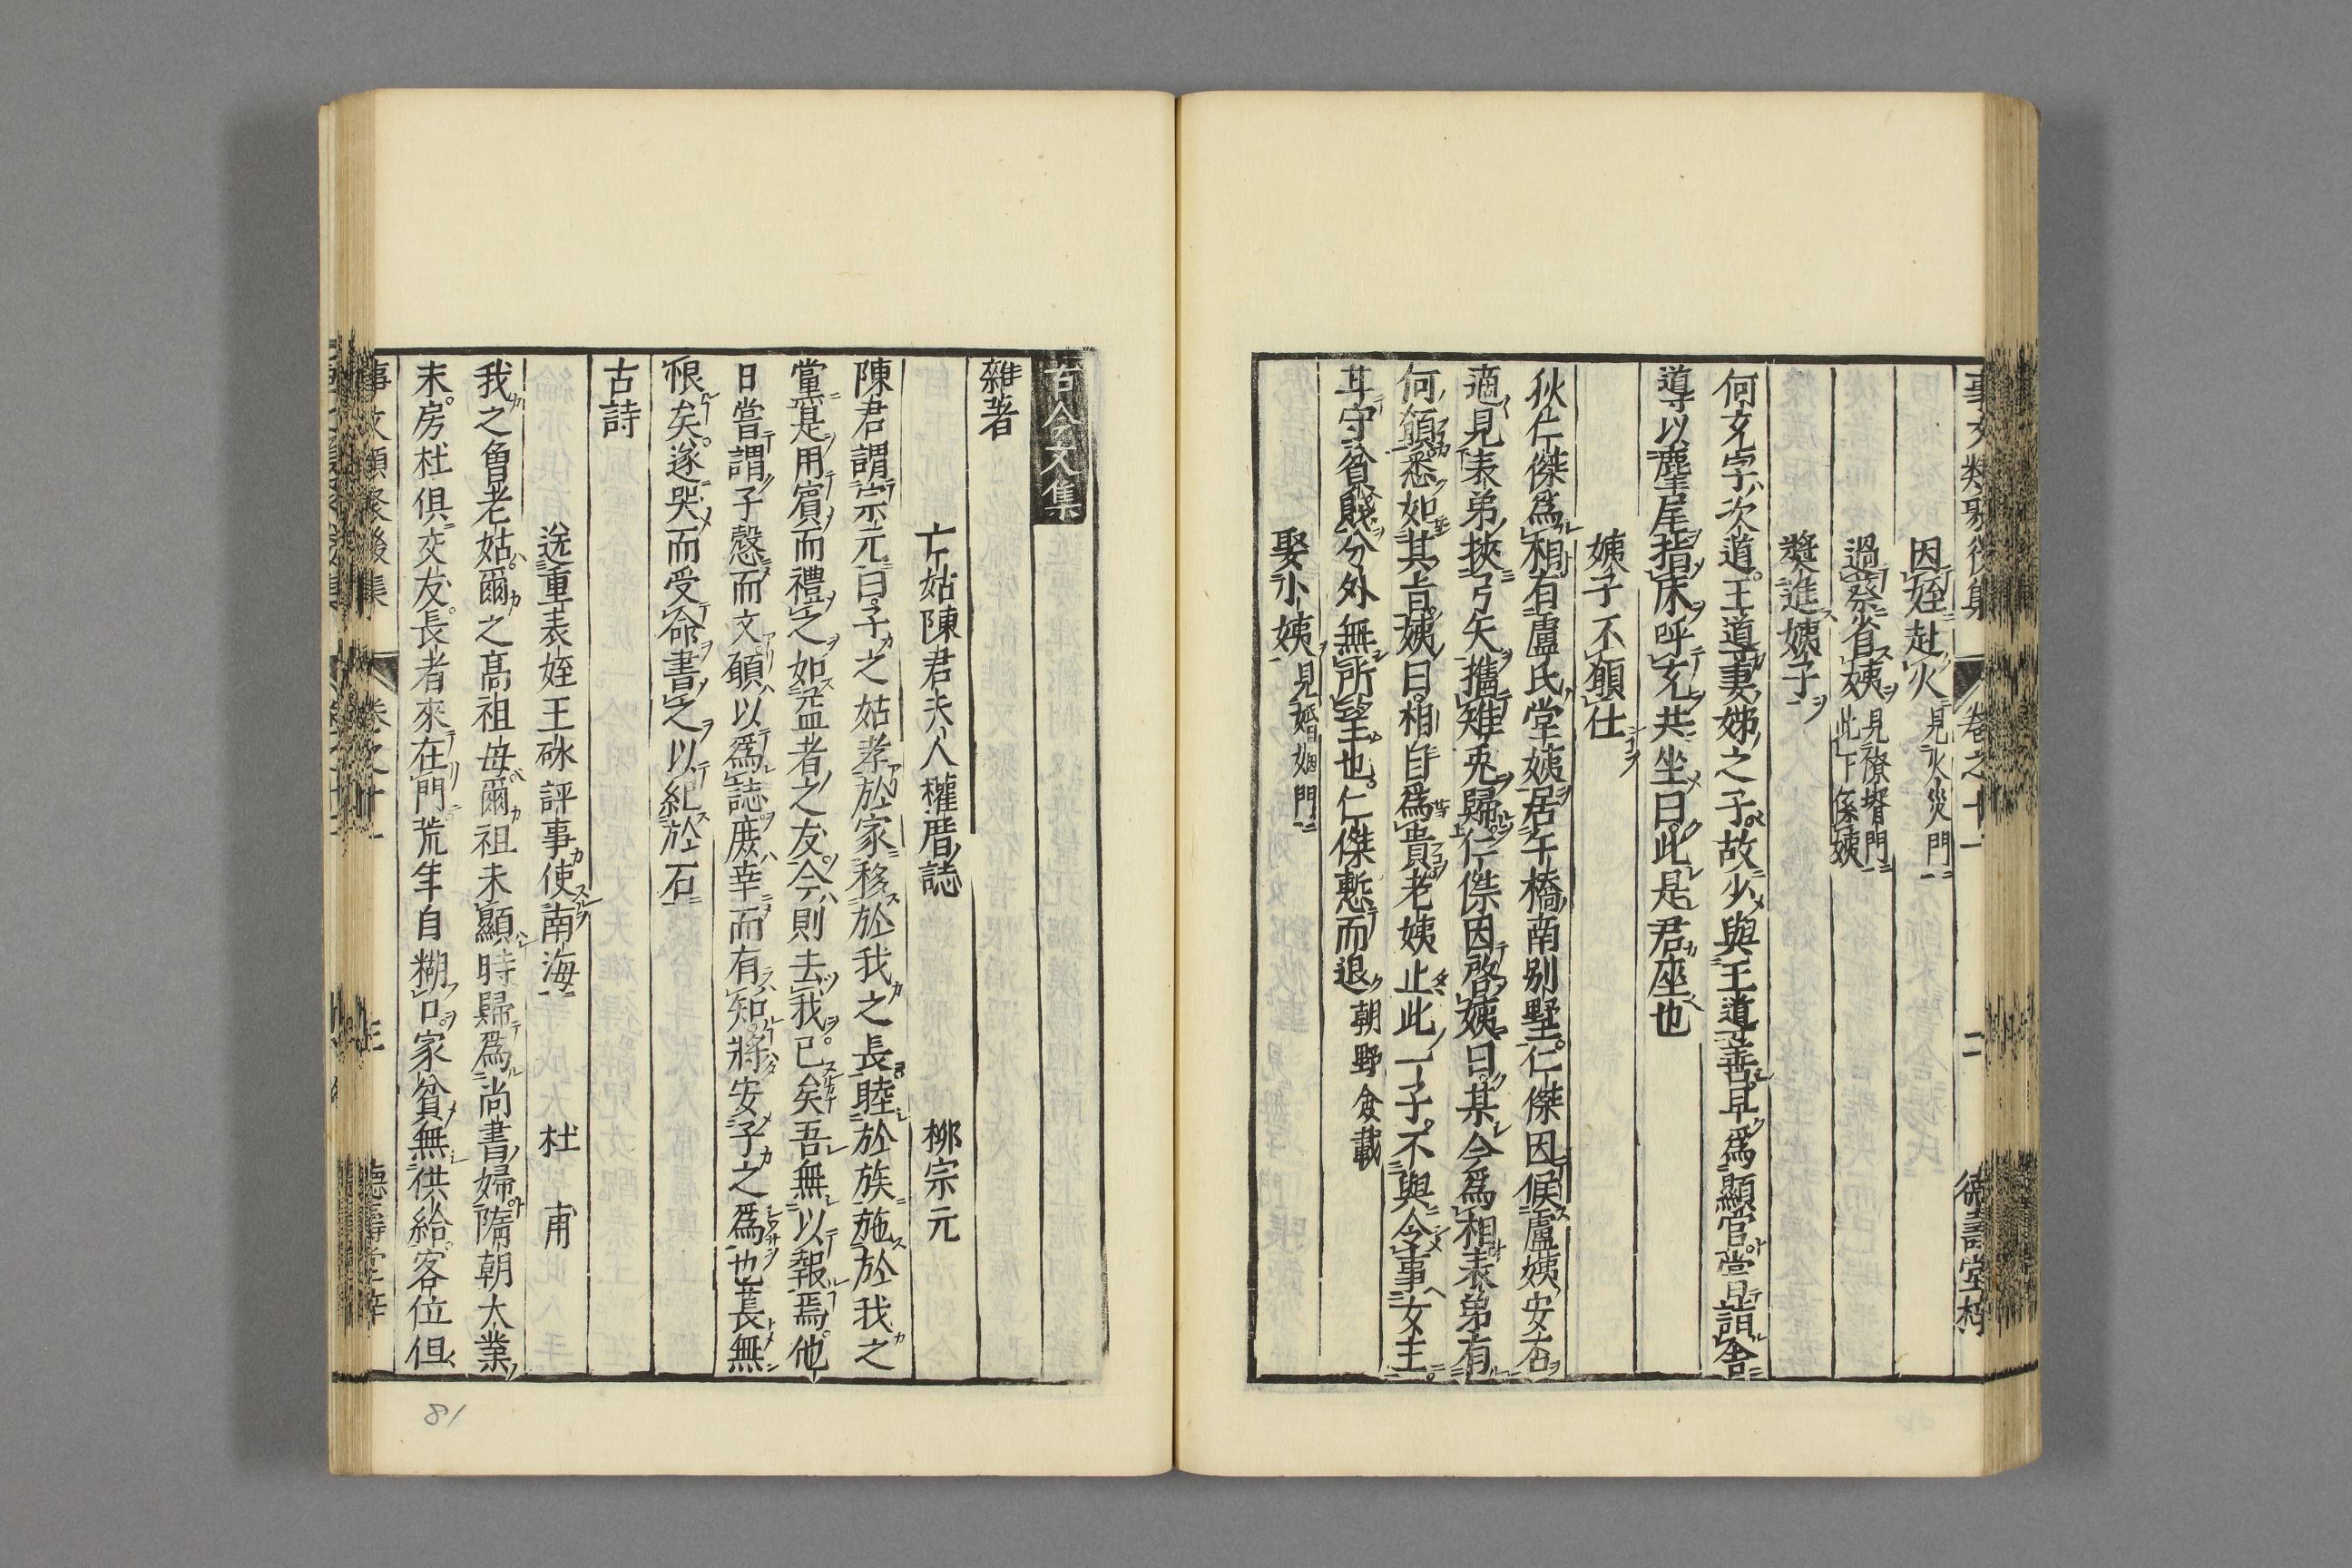 因姪赴火 見火災門
過蔡省姨 見潦壻門 此下係姨
奬進姨子
何充字次道王道妻姊之子故少與王道善早爲顯官嘗詣
導以麈尾指床呼充共坐曰此是君座也
姨子不願仕
狄仁傑爲相有盧氏堂姨居午橋南别墅仁傑因候盧姨安否
適見表弟挾弓矢攜雉兎歸仁傑因啓姨曰某今爲相表弟有
何願悉如其旨姨曰相自爲貴老姨止此一子不與令事女主
耳守貧賤分外無所望也仁傑慙而退 朝野僉載
娶小姨 見婚姻門
古今文集
雜著
亡姑陳君夫人權厝誌 柳宗元
陳君謂宗元曰子之姑孝於家移於我之長睦於族施於我之
黨是用賓而禮之如益者之友今則去我已矣吾無以報焉他
日嘗謂子慤而文願以爲誌庶幸而有知將安子之爲也萇無
恨矣遂哭而受命書之以紀於石
古詩
送重表姪王砅評事使南海 杜甫
我之曾老姑爾之高祖母爾祖未顯時歸爲尚書婦隋朝大業
末房杜俱交友長者來在門荒年自糊口家貧無供給客位但
事文類聚後集 卷之十一 德壽堂梓